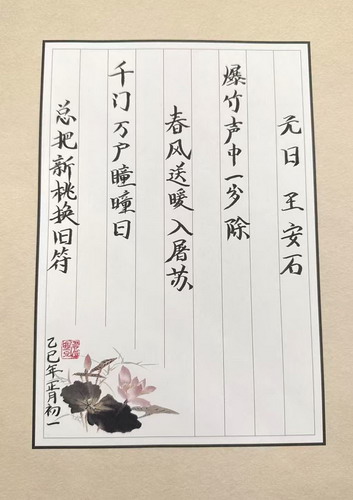 元日 王安石
爆竹声中一岁除
春风送暖入屠苏
千门万户瞳瞳日
总把新桃换旧符
乙巳年正月初一